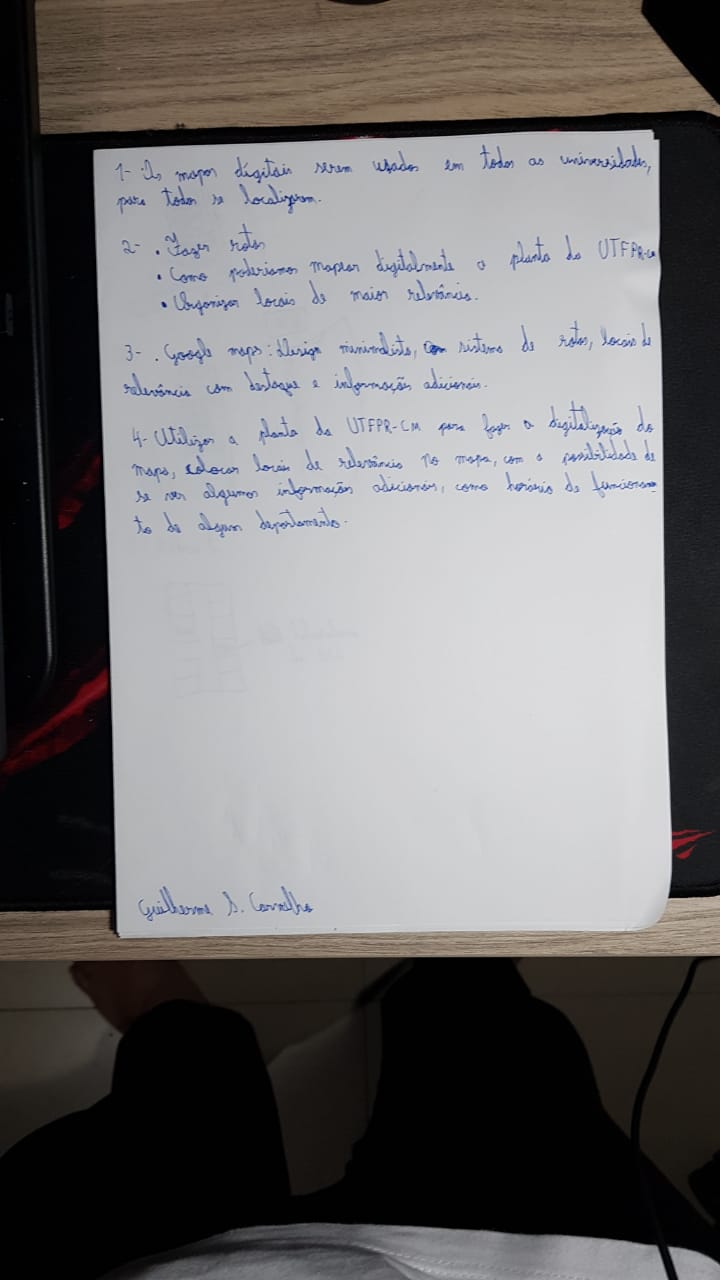 1- Os mapas digitais serem usados em todas as universidades,
para todos se localizarem.
2- • Fazer rotas
• Como poderiamos mapear digitalmente a planta da UTFPR-CM
• Organizar locais de maior relevância.
3- • Google maps: design minimalista, com sistema de rotas, locais de
relevância com destaque e informações adicionais.
4- Utilizar a planta da UTFPR-CM para fazer a digitalização do
mapa, colocar locais de relevância no mapa, com a possibilidade de
se ver algumas informações adicionais, como horário de funcionamen-
to de algum departamento.
Guilherme S. Carvalho